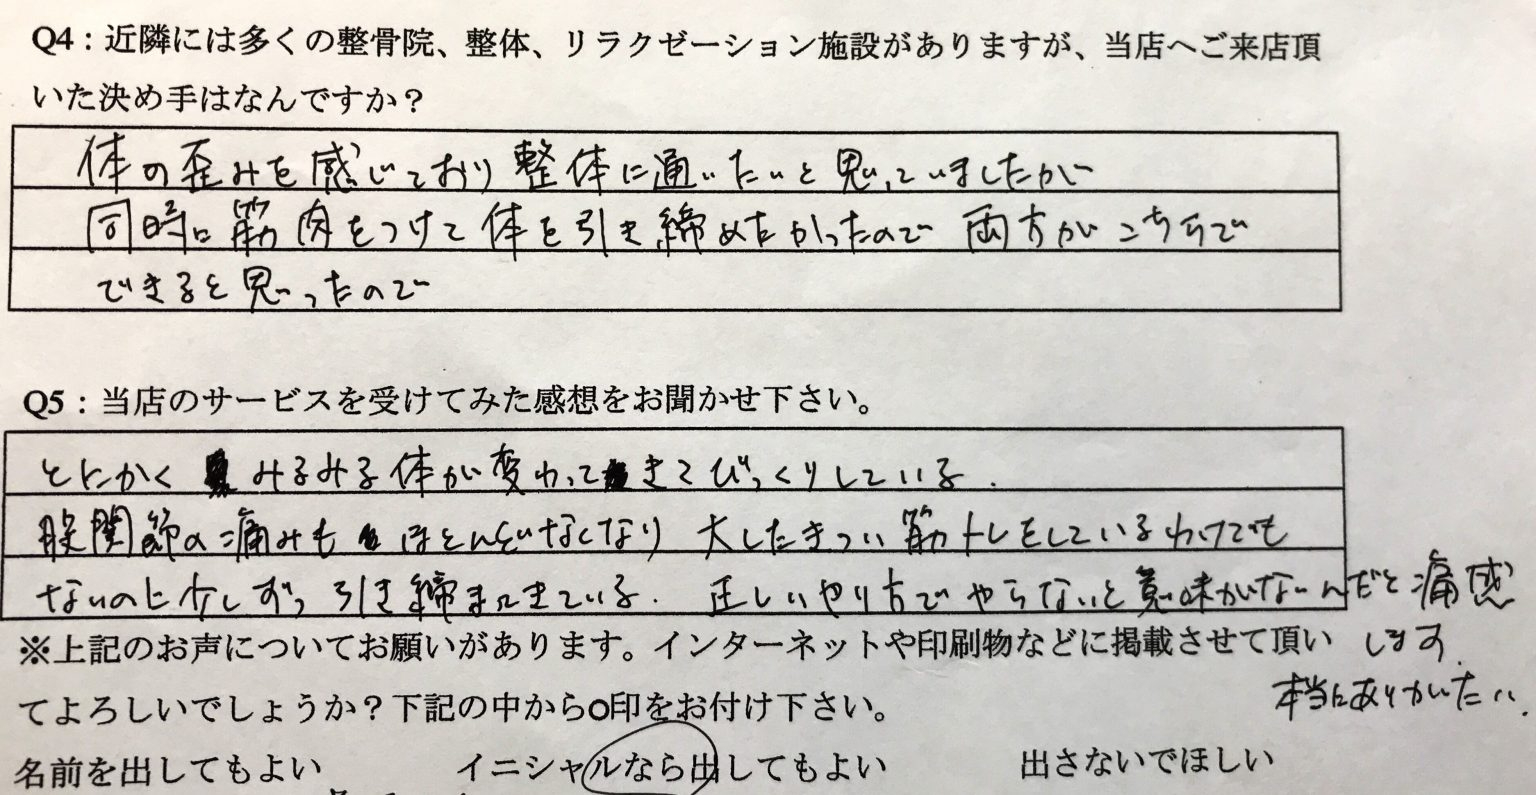 Q4：近隣には多くの整骨院、整体、リラクゼーション施設がありますが、当店へご来店頂
いた決め手はなんですか？
体の歪みを感じており整体に通いたいと思っていましたが
同時に筋肉をつけて体を引き締めたかったので両方がこちらで
できると思ったので
Q5：当店のサービスを受けてみた感想をお聞かせ下さい。
とにかくみるみる体が変わってきてびっくりしている.
股関節の痛みもほとんどなくなり大したきつい筋トレをしているわけでも
ないのに少しずつ引き締まってきている. 正しいやり方でやらないと意味がないんだと痛感
※上記のお声についてお願いがあります。インターネットや印刷物などに掲載させて頂い
します.
てよろしいでしょうか？下記の中から○印をお付け下さい。
本当にありがたい.
名前を出してもよい　イニシャルなら出してもよい　出さないでほしい